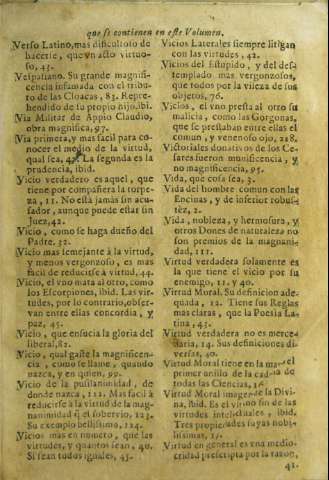 que se contienen en este Volumen.
Verso Latino, mas dificultoso de
hacerse, que vn acto virtuo-
so, 43.
Vespasiano. Su grande magnifi-
cencia infamada con el tribu-
to de las Cloacas, 83. Repre-
hendido de su propio hijo, ibi.
Via Militar de Appio Claudio,
obra magnifica, 97.
Via primera, y mas facil para co-
nocer el medio de la virtud,
qual sea, La segunda es la
prudencia, ibid.
Vicio verdadero es aquel, que
tiene por compañera la torpe-
za, 11. No està jamás sin acu-
sador, aunque puede estar sin
Juez, 42.
Vicio, como se haga dueño del
Padre. 32.
Vicio mas semejante à la virtud,
y menos vergonzoso, es mas
facil de reducirse à virtud, 44.
Vicio, el vno mata al otro, como
los Escorpiones, ibid. Las vir-
tudes, por lo contrario, obser-
van entre ellas concordia, y
paz, 45.
Vicio, que ensucia la gloria del
liberal, 82.
Vicio, qual gaste la magnificen-
cia, como se llame, quando
nazca, y en quien, 99.
Vicio de la pusilanimidad, de
donde nazca, 122. Mas facil à
reducirse à la virtud de la mag-
nanimidad q̃ el sobervio, 123.
Su exemplo bellissimo, 124.
Vicios mas en numero, que las
virtudes, y quantos sean, 40.
Si sean todos iguales, 43.
Vicios Laterales siempre litigan
con las virtudes, 42.
Vicios del estupido, y del des-
templado mas vergonzosos,
que todos por la vileza de sus
objetos, 76.
Vicios, el vno presta al otro su
malicia, como las Gorgonas,
que se prestaban entre ellas el
comun, y venenoso ojo, 228.
Victoriales donativos de los Ce-
sares fueron munificencia, y
no magnificencia, 95.
Vida, que cosa sea, 3.
Vida del hombre comun con las
Encinas, y de inferior robus-
tèz, 2.
Vida, nobleza, y hermosura, y
otros Dones de naturaleza no
son premios de la magnani-
dad, 111.
Virtud verdadera solamente es
la que tiene el vicio por su
enemigo, 11. y 40.
Virtud Moral. Su definicion ade-
quada, 12. Tiene sus Reglas
mas claras, que la Poesia La-
tina, 43.
Virtud verdadera no es merce-
naria, 14. Sus definiciones di-
versas, 40.
Virtud Moral tiene en la
primer anillo de la cadena de
todas las Ciencias,
Virtud Moral imagen de la Divi-
na, ibid. Es el vltimo fin de las
virtudes intelectuales, ibid.
Tres propiedades suyas nobi-
lissimas, 17.
Virtud en general es vna medio-
cridad prescripta por la razon,
41.